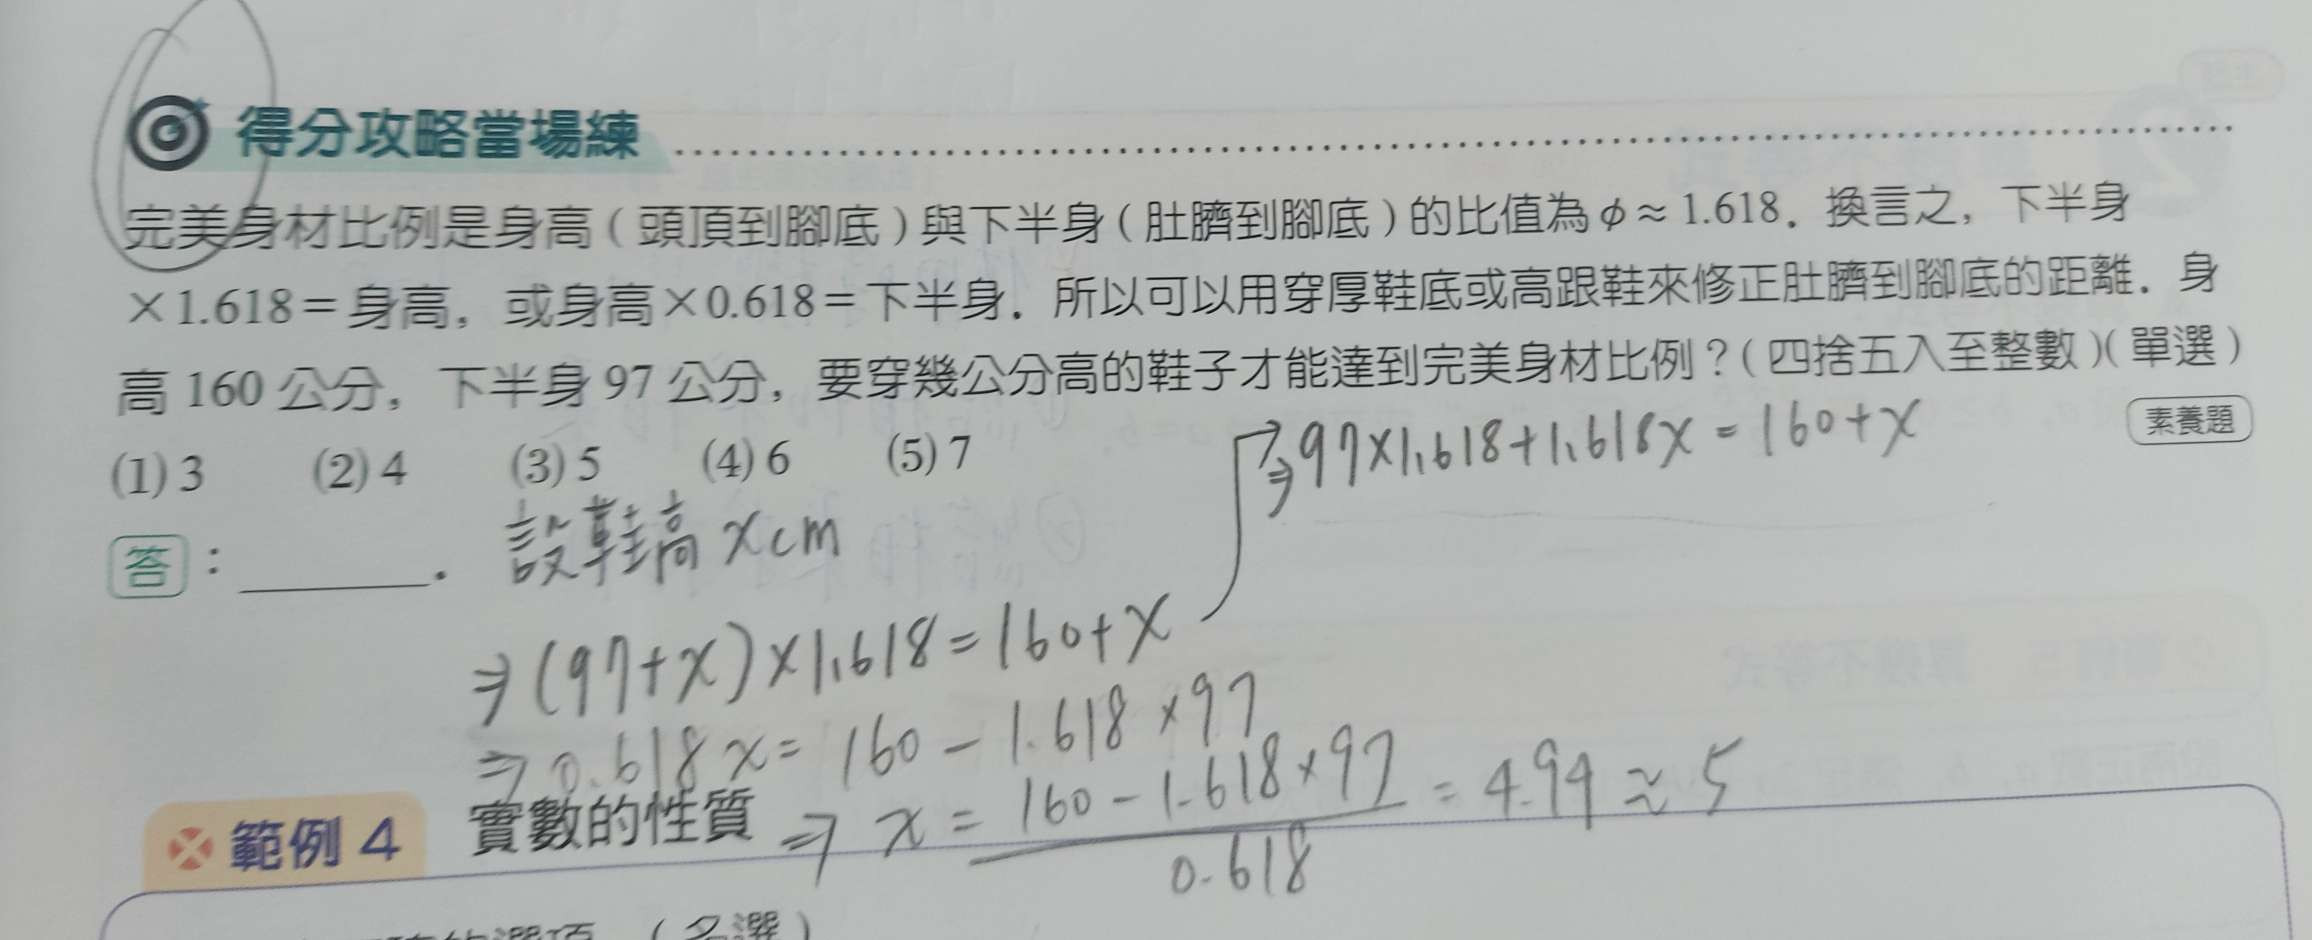 得分攻略當場練
完美身材比例是身高(頭頂到腳底)與下半身(肚臍到腳底)的比值為ϕ≈1.618.換言之,下半身
×1.618=身高,或身高×0.618=下半身.所以可以用穿厚鞋底或高跟鞋來修正肚臍到腳底的距離.身
高160公分,下半身97公分,要穿幾公分高的鞋子才能達到完美身材比例?(四捨五入至整數)(單選)
素養題
(1) 3 (2) 4 (3) 5 (4) 6 (5) 7
答:______.
設鞋高 x cm
⇒(97+x)×1.618=160+x
⇒97×1.618+1.618x=160+x
⇒0.618x=160-1.618×97
⇒x=(160-1.618×97)/0.618=4.94≈5
範例4 實數的性質
選項.(多選)